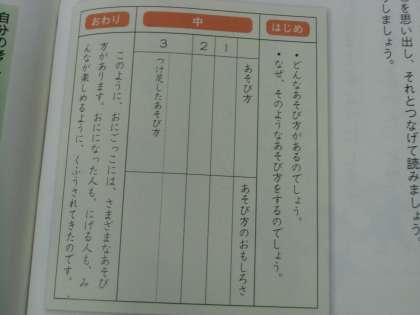 を思い出し、それとつなげて読みましょう。
しましょう。
はじめ
・どんなあそび方があるのでしょう。
・なぜ、そのようなあそび方をするのでしょう。
中
あそび方
あそび方のおもしろさ
1
2
3
つけ足したあそび方
おわり
このように、おにごっこには、さまざまなあそび
方があります。おにになった人も、にげる人も、み
んなが楽しめるように、くふうされてきたのです。
自分の考